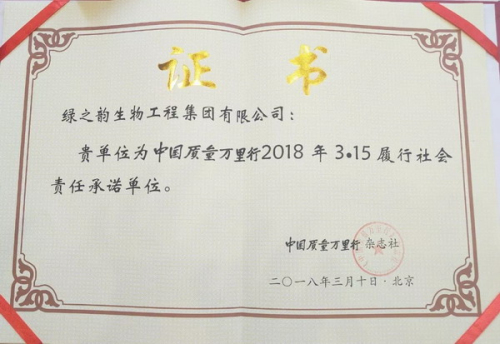 证书
绿之韵生物工程集团有限公司：
贵单位为中国质量万里行2018年3•15履行社会
责任承诺单位。
中国质量万里行杂志社
二〇一八年三月十日·北京